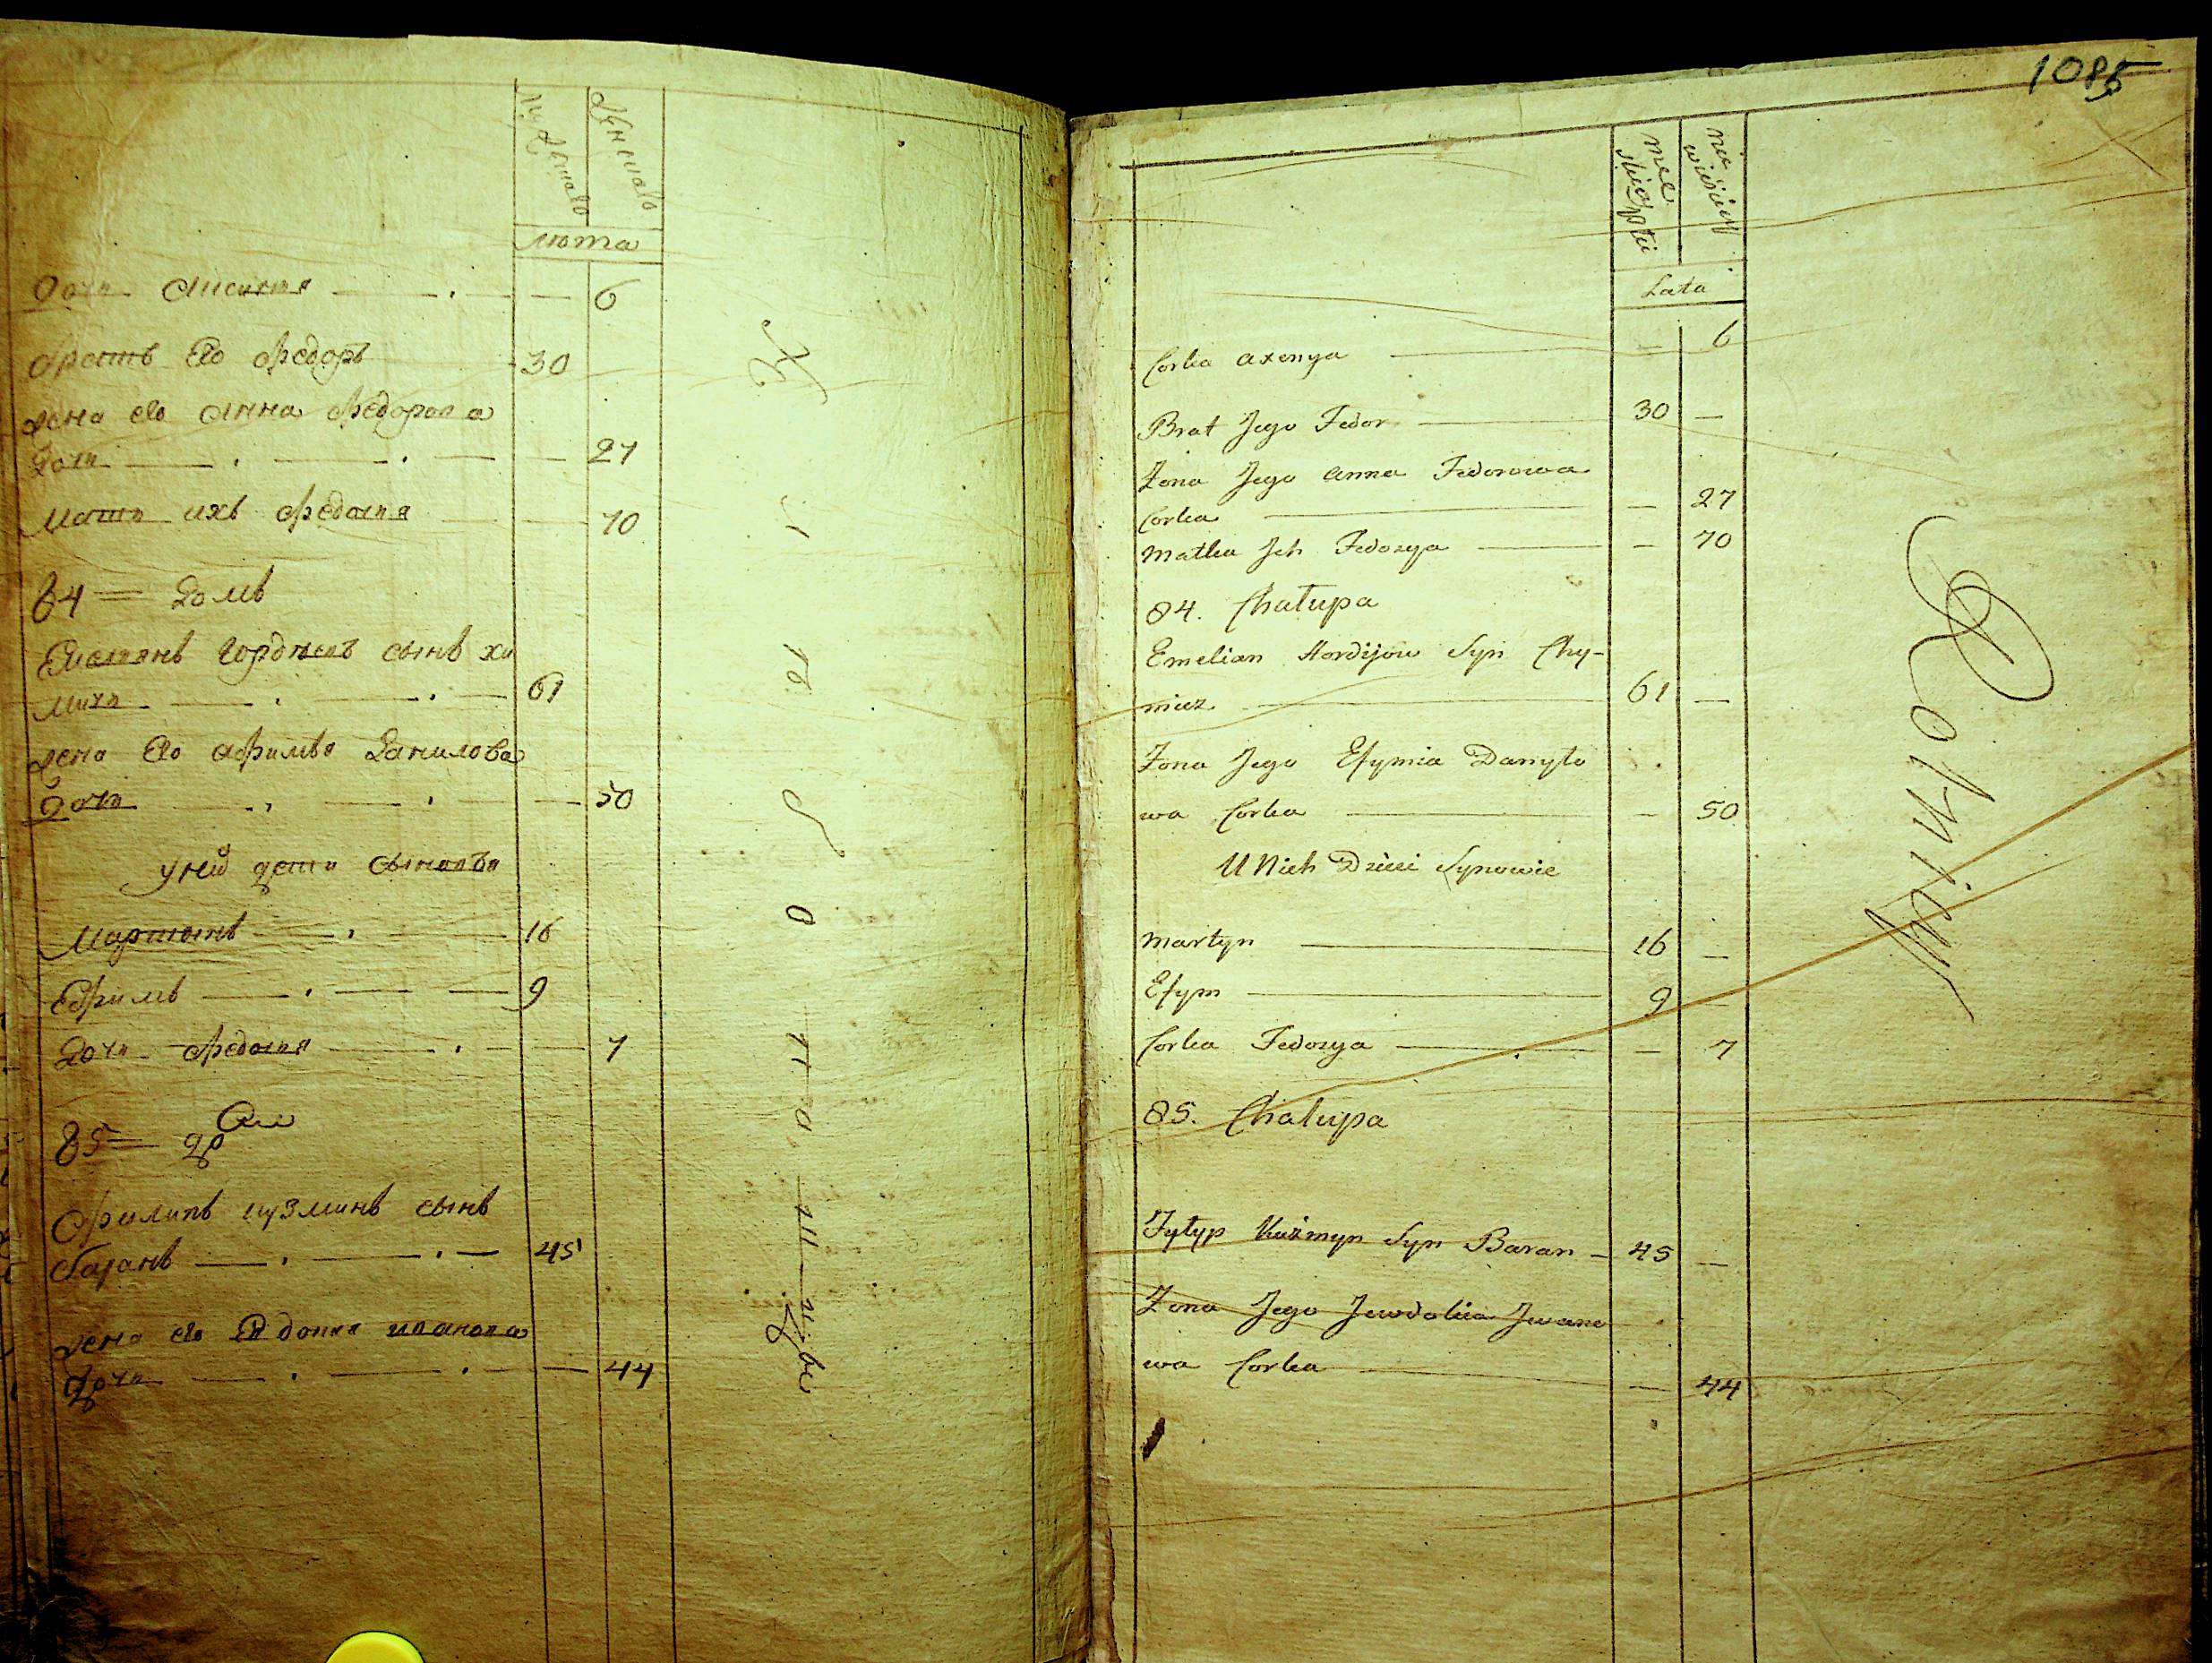 лета
Дочь Аксинья — 6
братъ Его Федоръ 30
жена его Анна Федорова
Дочь — 27
Мать ихъ Федосья — 70
84 = Домъ
Емелянъ Гордѣевъ сынъ Хи
мичъ — 61
жена Его Афимья Данилова
Дочь — 50
у нихъ дети сыновья
Мартынъ — 16
Ефимъ — 9
Дочь Федосья — 7
85 = до
Филипъ кузминъ сынъ
баранъ — 45
жена его Евдокия иванова
дочь — 44
1085
męzkiej
niewieściey
Lata
Corka Axenya — 6
Brat Jego Fedor — 30 —
Żona Jego Anna Fedorowa
Corka — 27
Matka Jch Fedosya — 70
84. Chałupa
Emelian Hordijow Syn Chy-
micz — 61 —
Żona Jego Efymia Danyło
wa Corka — 50
U Nich Dzieci Synowie
Martyn — 16 —
Efym — 9 —
Corka Fedosya — 7
85. Chałupa
Fyłyp Kuźmyn Syn Baran — 45 —
Żona Jego Jewdokia Jwano
wa Corka — 44